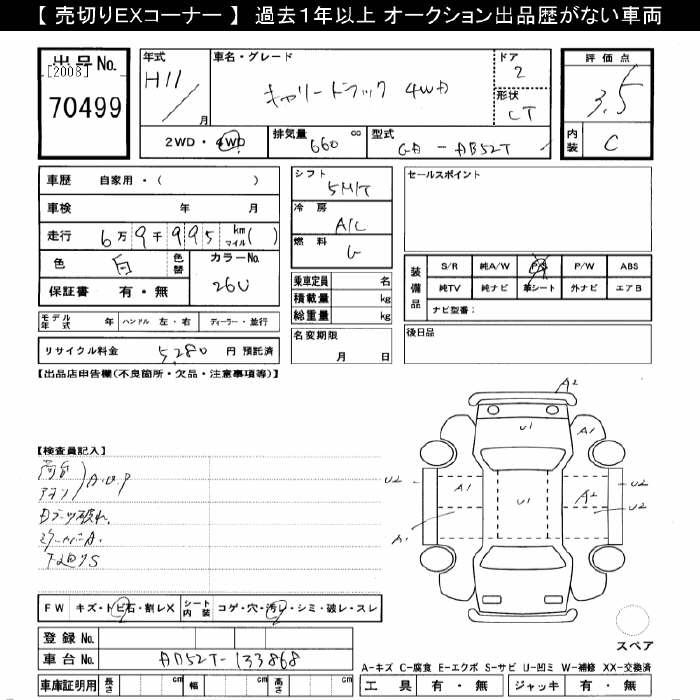 【 売切りEXコーナー 】 過去1年以上 オークション出品歴がない車両
出品No.
[2008]
70499
年式
H11
月
車名・グレード
キャリートラック 4WD
ドア
2
形状
CT
評価点
3.5
内装
C
2WD・4WD
排気量
660 cc
型式
GD - DB52T
車歴 自家用・( )
車検 年 月
走行 6万9千995 km マイル( )
色 白 色替
カラーNo.
26U
保証書 有・無
シフト
5M/T
冷房
A/C
燃料
G
乗車定員 名
積載量 kg
総重量 kg
セールスポイント
装備品
S/R 純A/W P/S P/W ABS
純TV 純ナビ 革シート 外ナビ エアB
ナビ型番:
モデル年式 年 ハンドル 左・右 ディーラー・並行
名変期限
月 日
後日品
リサイクル料金 5,280 円 預託済
【出品店申告欄(不良箇所・欠品・注意事項等)】
A2
U1
A1
【検査員記入】
U2
A1
U1
A2
U2
U2
A1
Dブーツ破れ.
下廻りS
FW キズ・トビ石・割レX シート内装 コゲ・穴・汚レ・シミ・破レ・スレ
スペア
登録No.
車台No. DB52T-133868
A-キズ C-腐食 E-エクボ S-サビ U-凹ミ W-補修 XX-交換済
車庫証明用 長さ cm 幅 cm 高さ cm
工具 有・無 ジャッキ 有・無